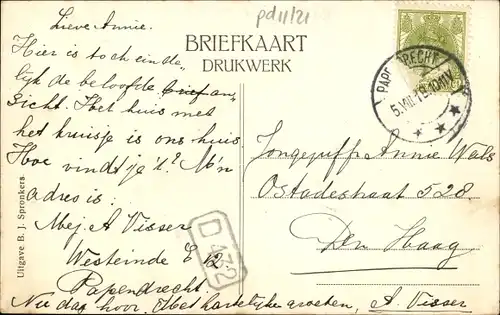 pd11/21
Lieve Annie.
BRIEFKAART
DRUKWERK
Hier is toch einde-
lijk de beloofde brief an-
sicht. Het huis met
het kruisje is ons huis
Hoe vindt je 't? M'n
adres is:
Mej. A Visser
Westeinde E 12
Papendrecht.
Nu dag hoor, Met hartelijke groeten, A. Visser
PAPENDRECHT
5.VIII.19.10-11V
Jongejuffr Annie Wals
Ostadestraat 528.
Den Haag
D 432
Uitgave B. J. Spronkers.